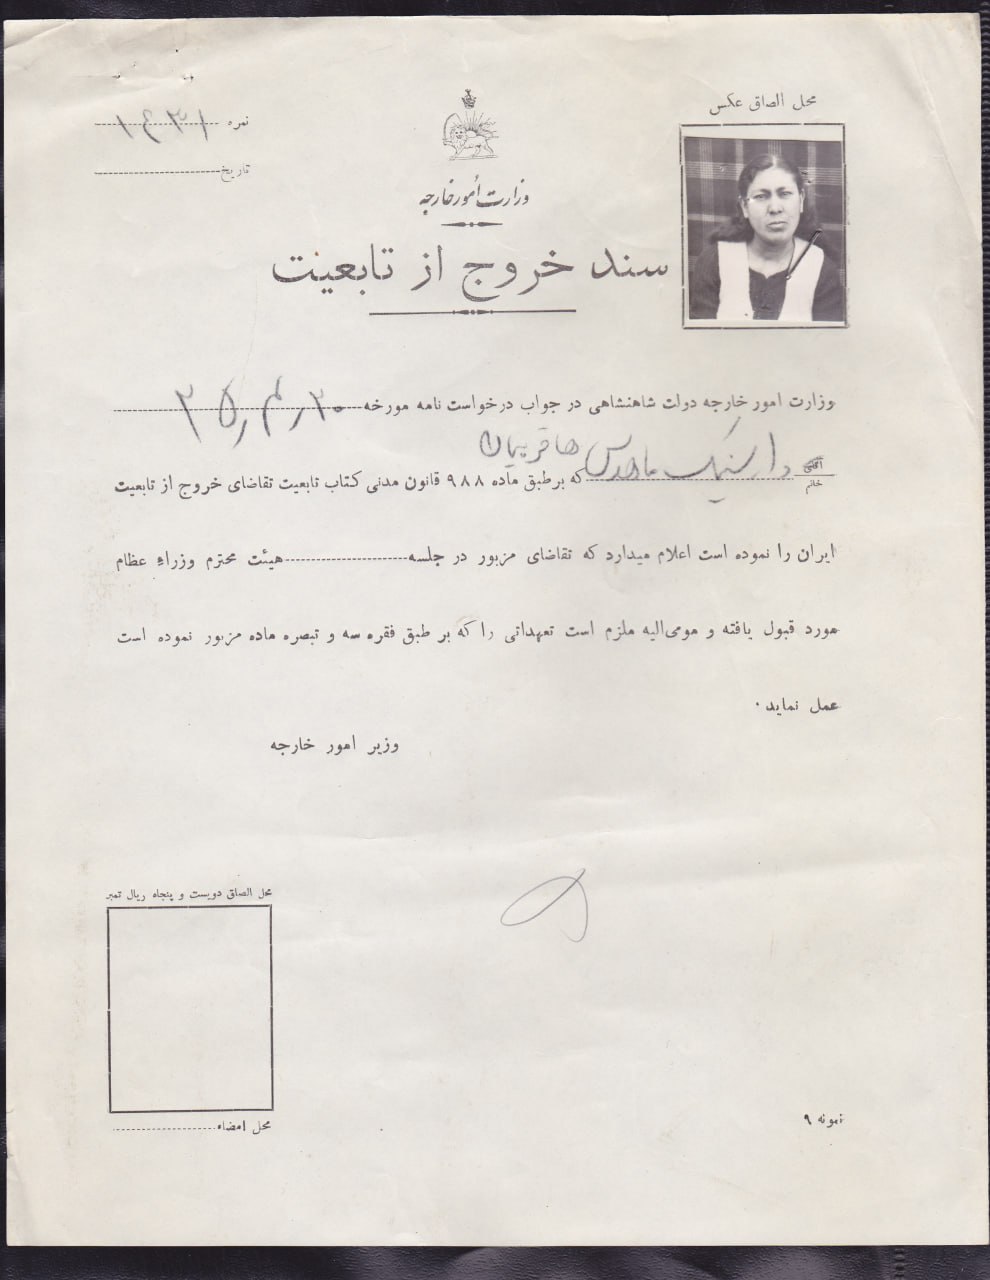 محل الصاق عکس
نمره ۱۴۳۱
تاریخ
وزارت امور خارجه
سند خروج از تابعیت
وزارت امور خارجه دولت شاهنشاهی در جواب درخواست نامه مورخه
آقای
خانم
که بر طبق ماده ۹۸۸ قانون مدنی کتاب تابعیت تقاضای خروج از تابعیت
ایران را نموده است اعلام میدارد که تقاضای مزبور در جلسه هیئت محترم وزراء عظام
مورد قبول یافته و مومی‌الیه ملزم است تعهداتی را که بر طبق فقره سه و تبصره ماده مزبور نموده است
عمل نماید.
وزیر امور خارجه
محل الصاق دویست و پنجاه ریال تمبر
محل امضاء
نمونه ۹